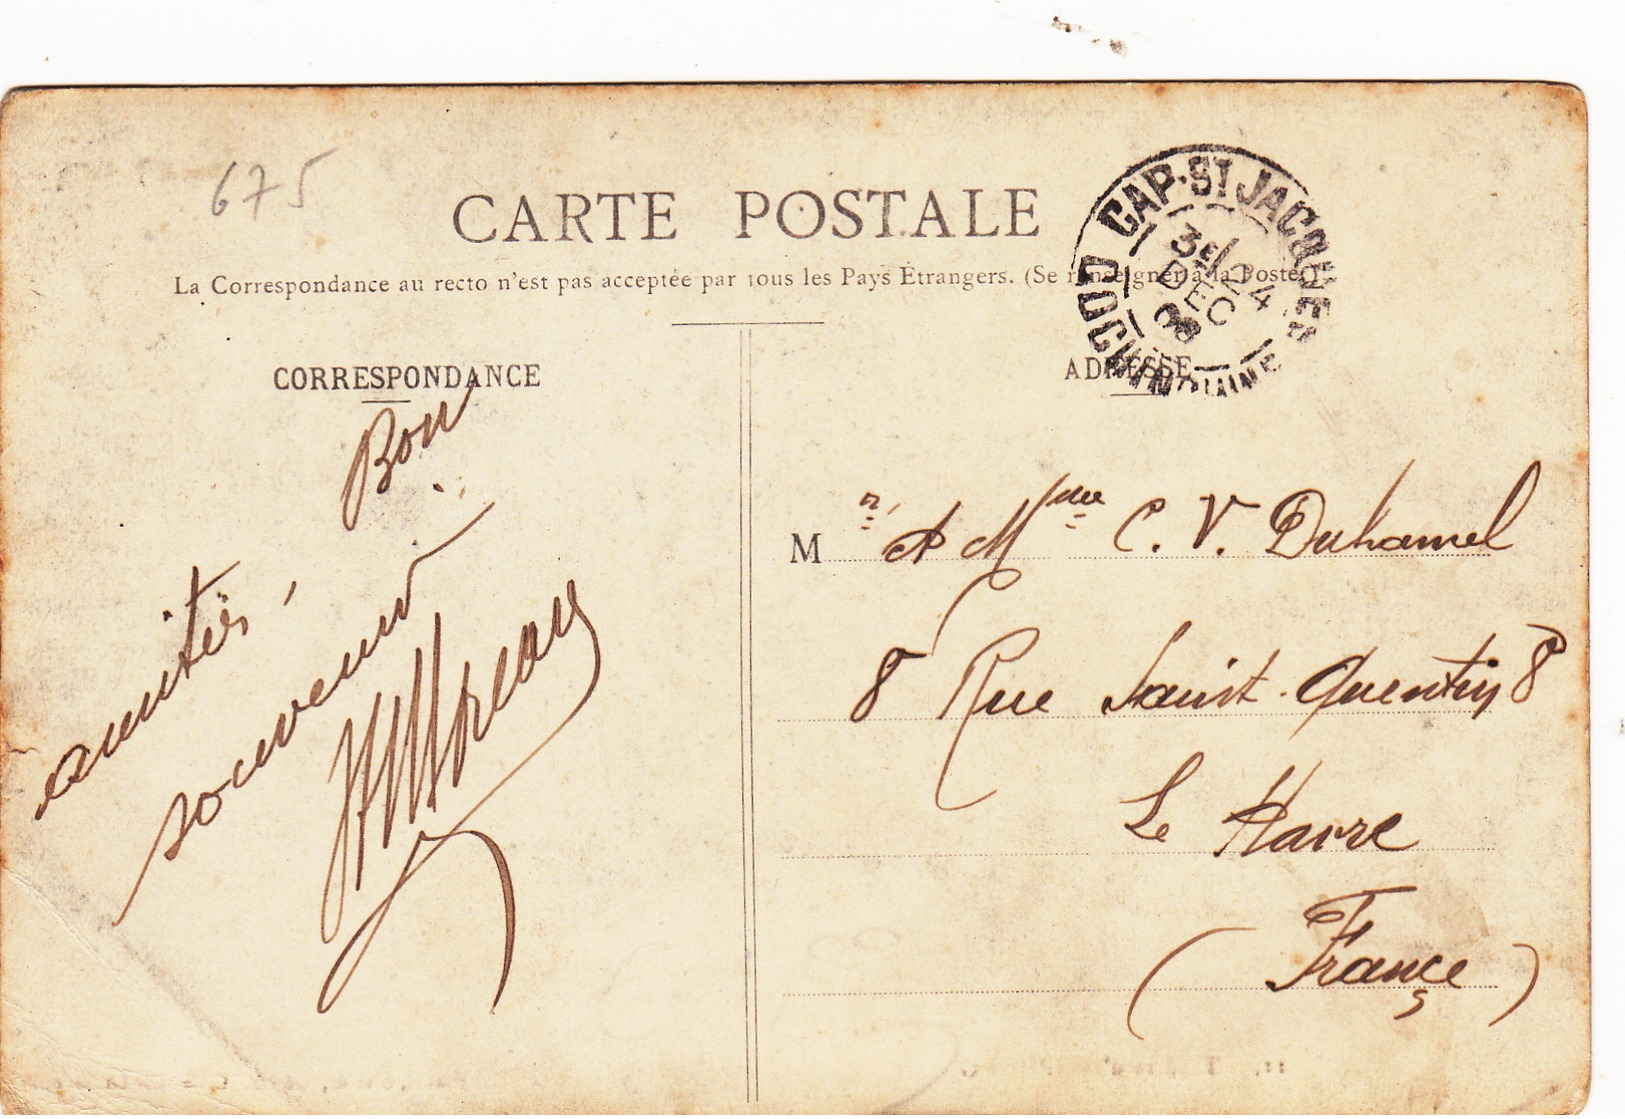 675
CARTE POSTALE
La Correspondance au recto n'est pas acceptée par tous les Pays Étrangers. (Se renseigner à la Poste)
CORRESPONDANCE
ADRESSE
CAP-ST JACQUES
COCHINCHINE
3e/24
DEC
08
Bon
amitiés,
souvenir
M r & Mme C. V. Duhamel
8 Rue Saint-Quentin 8
Le Havre
(France)